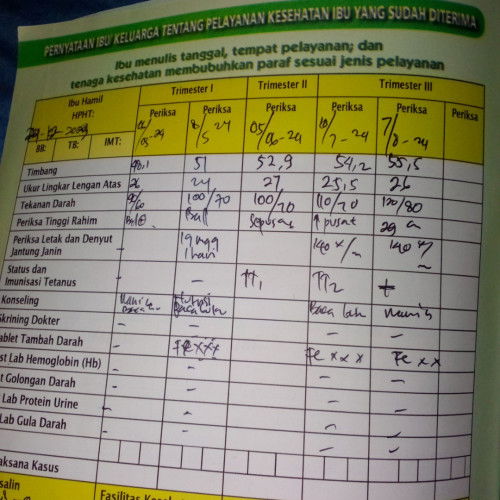 PERNYATAAN IBU/ KELUARGA TENTANG PELAYANAN KESEHATAN IBU YANG SUDAH DITERIMA
Ibu menulis tanggal, tempat pelayanan; dan
tenaga kesehatan membubuhkan paraf sesuai jenis pelayanan
Ibu Hamil
HPHT:
BB: TB: IMT:
Trimester I Trimester II Trimester III
Periksa Periksa Periksa Periksa Periksa Periksa
8/5 24 05/06-24 10/7-24 7/8-24
Timbang 51 52,9 54,2 55,5
Ukur Lingkar Lengan Atas 26 24 27 25,5 26
Tekanan Darah 90/60 100/70 100/70 110/70 120/80
Periksa Tinggi Rahim Ball Ball sepusat ↑ pusat 29
Periksa Letak dan Denyut
Jantung Janin - 140 x/m 140 x/
Status dan
Imunisasi Tetanus - - TT1 TT2 +
Konseling
Skrining Dokter - - - -
ablet Tambah Darah - Fe xxx
st Lab Hemoglobin (Hb) Fe xxx Fe xx
t Golongan Darah - - -
Lab Protein Urine - - -
Lab Gula Darah - - -
aksana Kasus
salin